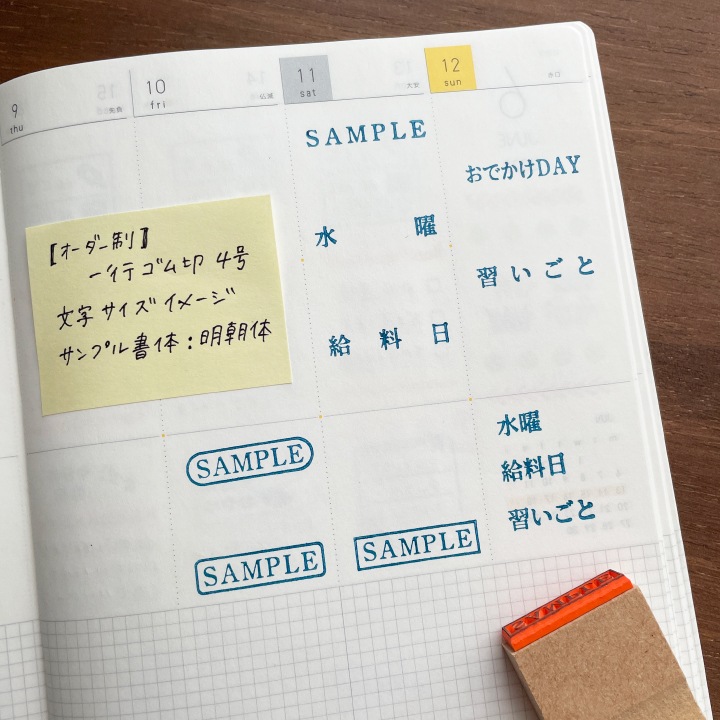 9
thu
10
fri
仏滅
11
sat
大安
12
sun
SAMPLE
おでかけDAY
水 曜
習いごと
給 料 日
【オーダー制】
一行ゴム印 4号
文字サイズイメージ
サンプル書体：明朝体
SAMPLE
SAMPLE
SAMPLE
水曜
給料日
習いごと